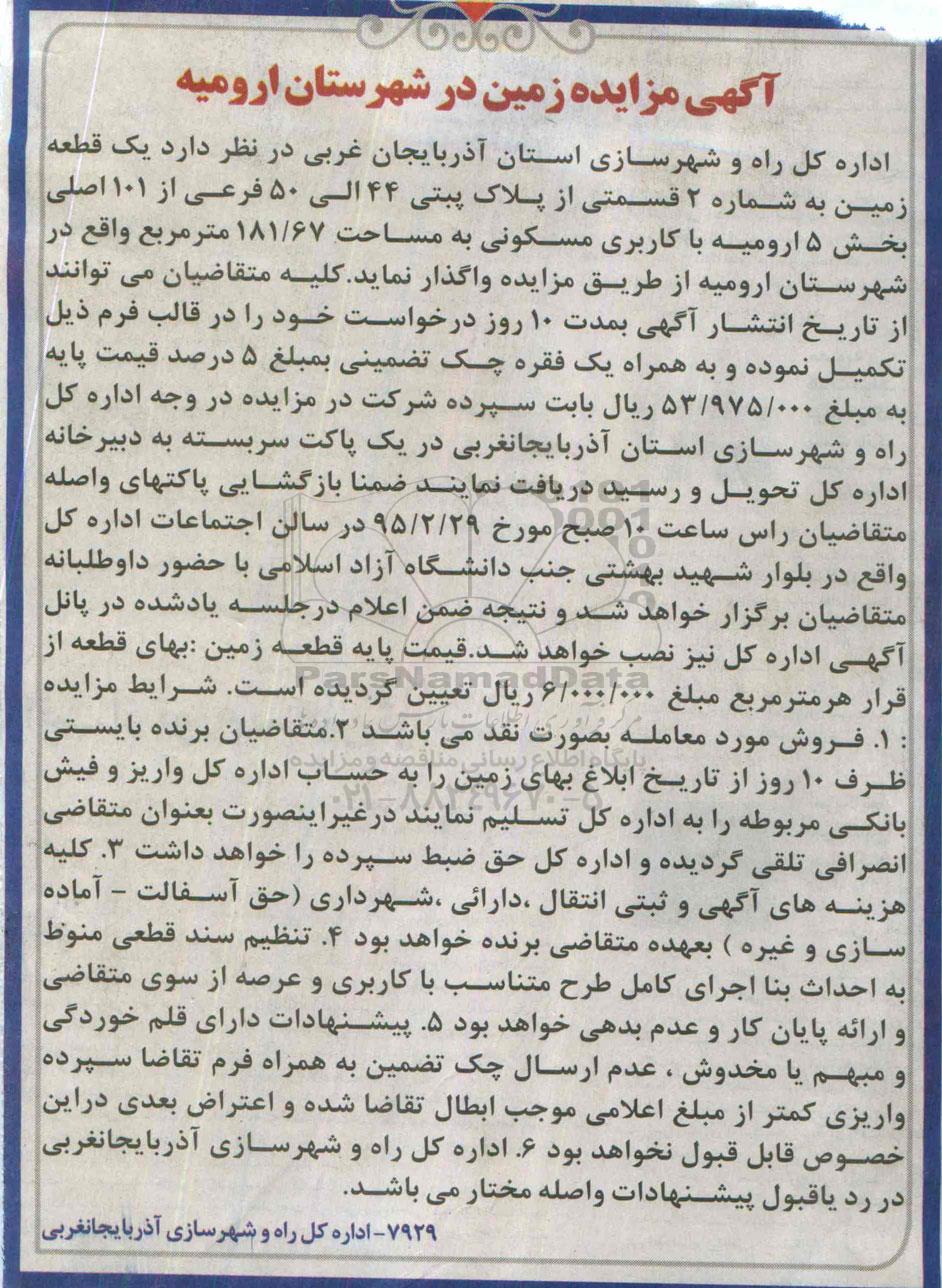 آگهی مزایده زمین در شهرستان ارومیه
اداره کل راه و شهرسازی استان آذربایجان غربی در نظر دارد یک قطعه
زمین به شماره ۲ قسمتی از پلاک پبتی ۴۴ الی ۵۰ فرعی از ۱۰۱ اصلی
بخش ۵ ارومیه با کاربری مسکونی به مساحت ۱۸۱/۶۷ مترمربع واقع در
شهرستان ارومیه از طریق مزایده واگذار نماید.کلیه متقاضیان می توانند
از تاریخ انتشار آگهی بمدت ۱۰ روز درخواست خود را در قالب فرم ذیل
تکمیل نموده و به همراه یک فقره چک تضمینی بمبلغ ۵ درصد قیمت پایه
به مبلغ ۵۳/۹۷۵/۰۰۰ ریال بابت سپرده شرکت در مزایده در وجه اداره کل
راه و شهرسازی استان آذربایجانغربی در یک پاکت سربسته به دبیرخانه
اداره کل تحویل و رسید دریافت نمایند ضمنا بازگشایی پاکتهای واصله
متقاضیان راس ساعت ۱۰ صبح مورخ ۹۵/۲/۲۹ در سالن اجتماعات اداره کل
واقع در بلوار شهید بهشتی جنب دانشگاه آزاد اسلامی با حضور داوطلبانه
متقاضیان برگزار خواهد شد و نتیجه ضمن اعلام درجلسه یادشده در پانل
آگهی اداره کل نیز نصب خواهد شد.قیمت پایه قطعه زمین :بهای قطعه از
ParsNamadData
قرار هرمترمربع مبلغ ۶/۰۰۰/۰۰۰ ریال تعیین گردیده است. شرایط مزایده
: ۱. فروش مورد معامله بصورت نقد می باشد ۲.متقاضیان برنده بایستی
پایگاه اطلاع رسانی مناقصه و مزایده
ظرف ۱۰ روز از تاریخ ابلاغ بهای زمین را به حساب اداره کل واریز و فیش
۰۲۱-۸۸۳۴۹۶۷۰-۵
بانکی مربوطه را به اداره کل تسلیم نمایند درغیراینصورت بعنوان متقاضی
انصرافی تلقی گردیده و اداره کل حق ضبط سپرده را خواهد داشت ۳. کلیه
هزینه های آگهی و ثبتی انتقال ،دارائی ،شهرداری (حق آسفالت - آماده
سازی و غیره ) بعهده متقاضی برنده خواهد بود ۴. تنظیم سند قطعی منوط
به احداث بنا اجرای کامل طرح متناسب با کاربری و عرصه از سوی متقاضی
و ارائه پایان کار و عدم بدهی خواهد بود ۵. پیشنهادات دارای قلم خوردگی
و مبهم یا مخدوش ، عدم ارسال چک تضمین به همراه فرم تقاضا سپرده
واریزی کمتر از مبلغ اعلامی موجب ابطال تقاضا شده و اعتراض بعدی دراین
خصوص قابل قبول نخواهد بود ۶. اداره کل راه و شهرسازی آذربایجانغربی
در رد یاقبول پیشنهادات واصله مختار می باشد.
۷۹۲۹-اداره کل راه و شهرسازی آذربایجانغربی